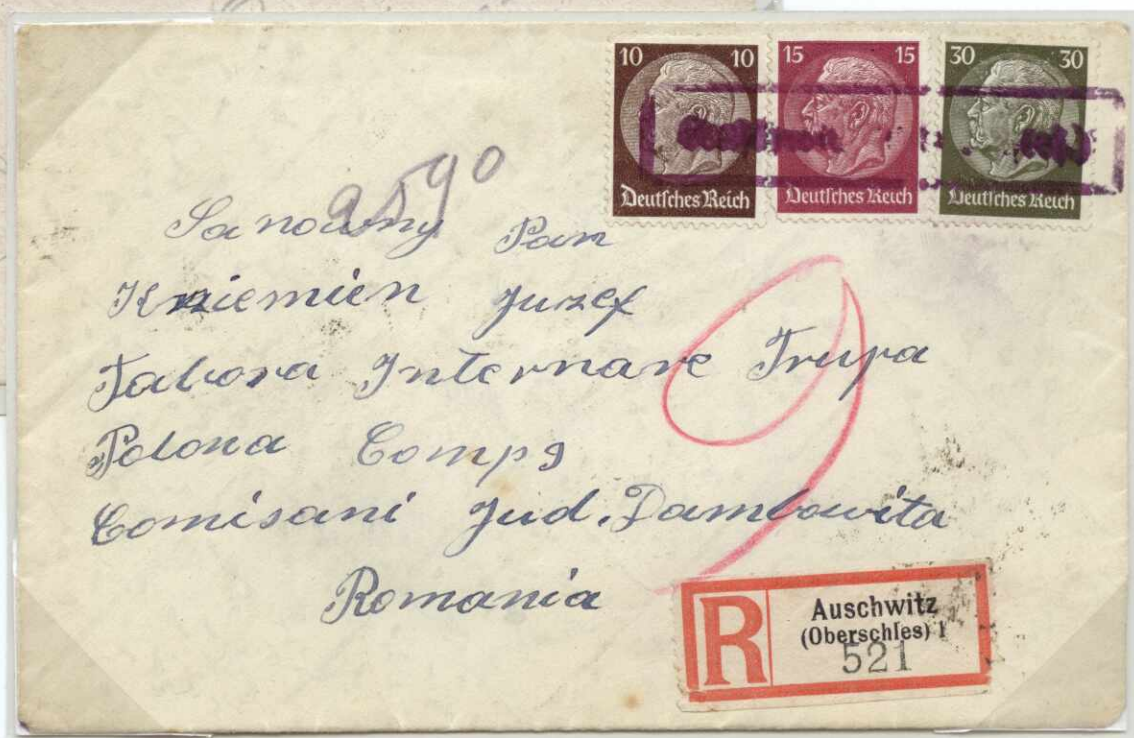 10 10 15 15 30 30
Deutsches Reich Deutsches Reich Deutsches Reich
2590
Sanowny Pan
Krziemien Juzef
Tabora Internare Trupa
Polona Comp 9
Comisani Jud. Dambowita
Romania
9
R Auschwitz
(Oberschles) 1
521